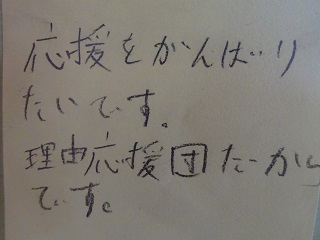 応援をがんばり
たいです。
理由応援団だから
です。